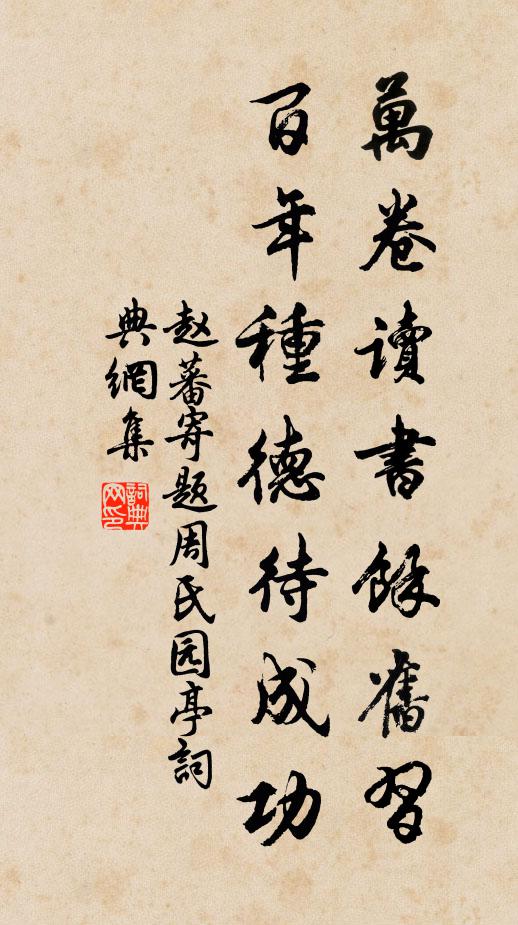 萬卷讀書餘舊習
百年種德待成功
赵蕃寄题周氏园亭詞
典網集
詞典
网印